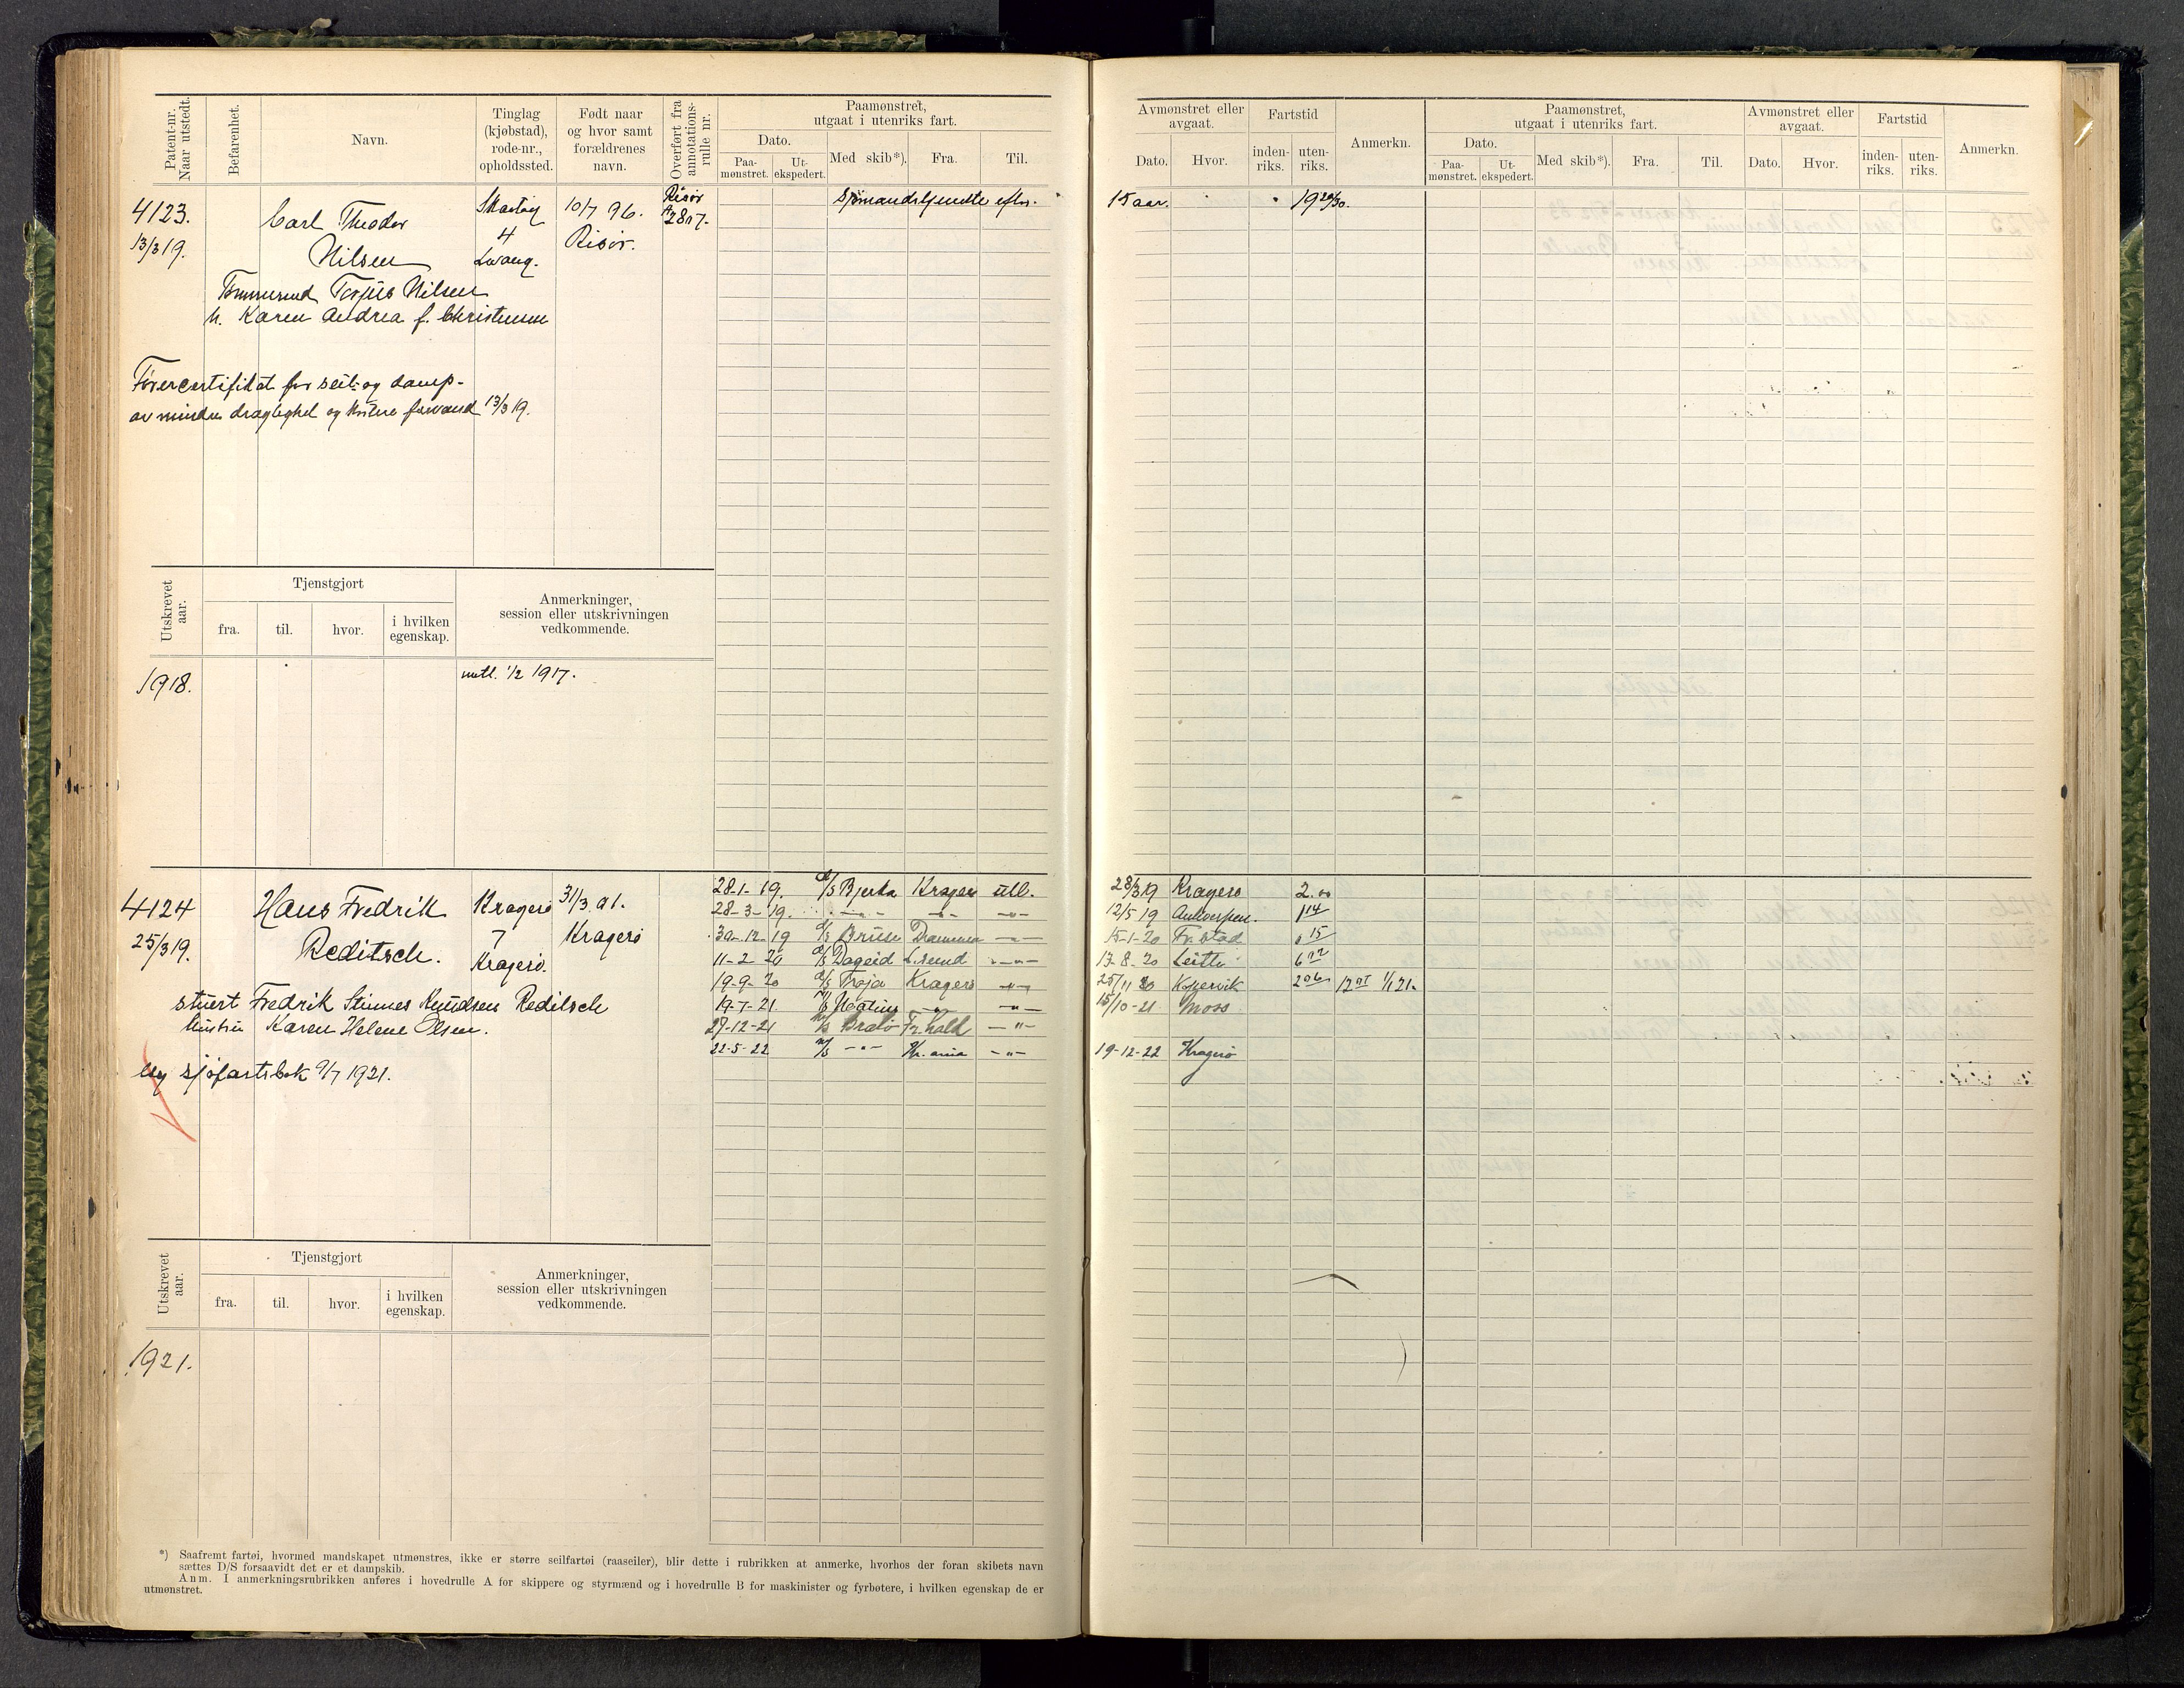 Patent-nr. Naar utstedt.
Befarenhet.
Navn.
Tinglag (kjøbstad), rode-nr., opholdssted.
Født naar og hvor samt forældrenes navn.
Overført fra annotations-rulle nr.
Paamønstret, utgaat i utenriks fart.
Dato.
Paa-mønstret.
Ut-ekspedert.
Med skib*).
Fra.
Til.
4123.
13/3 19.
Carl Theodor
Nilsen
4
10/7 96.
Risør.
Risør
2817.
Torjus Nilsen
Karen Andrea f. Christensen
Førercertifikat for seil- og damp-
av mindre drægtighet og kortere farvand 13/3 19.
Utskrevet aar.
Tjenstgjort
fra.
til.
hvor.
i hvilken egenskap.
Anmerkninger, session eller utskrivningen vedkommende.
1918.
1/2 1917.
4124
25/3 19.
Hans Fredrik
Reditsch.
Kragerø
7
Kragerø.
31/3 01.
Kragerø
stuert Fredrik Stinnes Knudsen Reditsch
hustru Karen Helene Olsen.
Ny sjøfartsbok 9/7 1921.
28-1-19. D/S Bjerka Kragerø utl.
28-3-19. -"- -"- -"-
30-12-19 D/S Bruse Drammen -"-
11-2-20 D/S Dageid L.sund -"-
19-9-20 D/S Troja Kragerø -"-
19-7-21 -"- -"-
27-12-21 Fr.hald -"-
22-5-22 M/S -"- Kr.ania -"-
Utskrevet aar.
Tjenstgjort
fra.
til.
hvor.
i hvilken egenskap.
Anmerkninger, session eller utskrivningen vedkommende.
1921.
*) Saafremt fartøi, hvormed mandskapet utmønstres, ikke er større seilfartøi (raaseiler), blir dette i rubrikken at anmerke, hvorhos der foran skibets navn
sættes D/S forsaavidt det er et dampskib.
Anm. I anmerkningsrubrikken anføres i hovedrulle A for skippere og styrmænd og i hovedrulle B for maskinister og fyrbøtere, i hvilken egenskap de er
utmønstret.
Avmønstret eller avgaat.
Dato.
Hvor.
Fartstid
inden-riks.
uten-riks.
Anmerkn.
Paamønstret, utgaat i utenriks fart.
Dato.
Paa-mønstret.
Ut-ekspedert.
Med skib*).
Fra.
Til.
Avmønstret eller avgaat.
Dato.
Hvor.
Fartstid
inden-riks.
uten-riks.
Anmerkn.
15 aar.
28/3 19 Kragerø 2.00
12/5 19 Antwerpen. 1 14
15-1-20 Fr.stad 0 15
17-8-20 Leith
25/11 20 Kopervik 2 06 1/1 21.
15/10-21 Moss
19-12-22 Kragerø